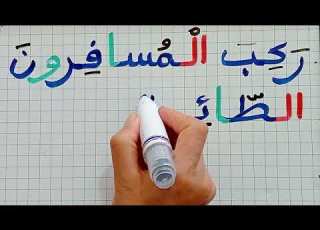 رَكِبَ الْمُسافِرونَ
الطّائِ